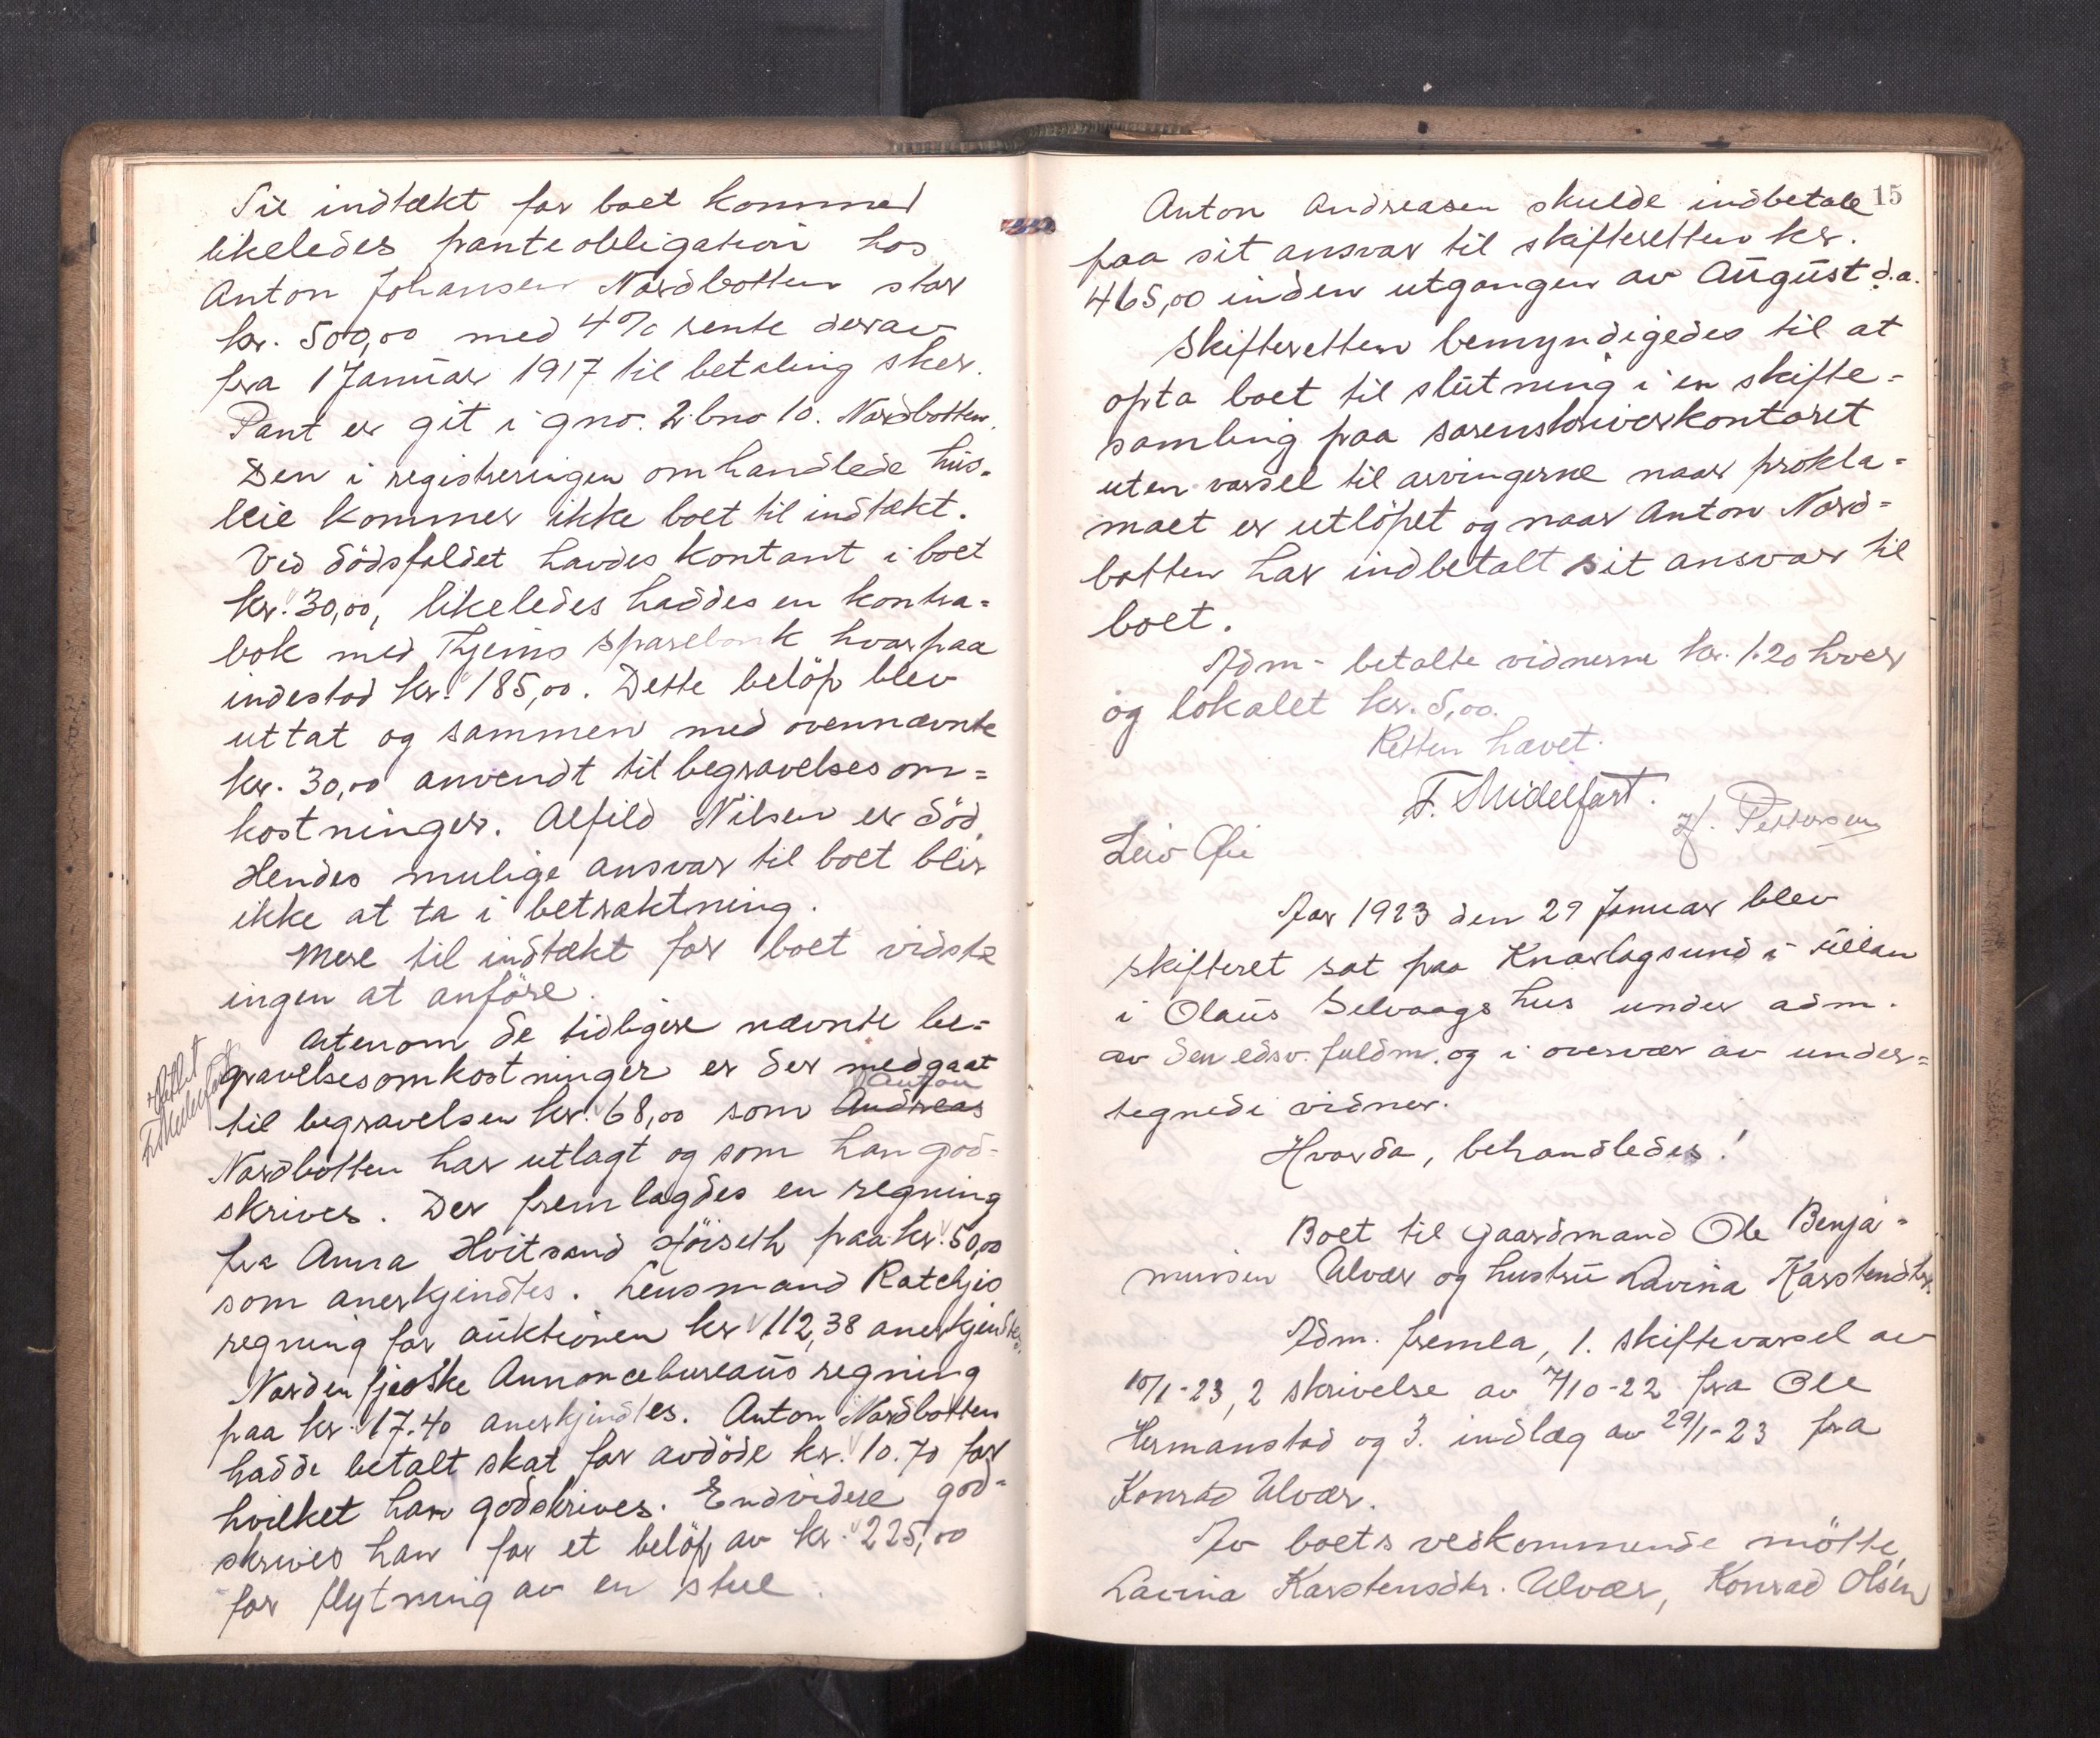 Til indtækt for boet kommer
likeledes panteobligation hos
Anton Johansen Nordbotten stor
kr. 500,00 med 4% rente derav
fra 1 Januar 1917 til betaling sker.
Pant er git i gno. 2 bno 10. Nordbotten.
Den i registreringen omhandlede hus-
leie kommer ikke boet til indtækt.
Ved dödsfaldet havdes kontant i boet
kr. 30,00, likeledes haddes en kontra=
bok med Hjems sparebank hvorpaa
indestod kr. 185,00. Dette belöp blev
uttat og sammen med ovennævnte
kr. 30,00 anvendt til begravelsesom=
kostninger. Alfild Nilsen er död.
Hendes mulige ansvar til boet blir
ikke at ta i betraktning.
Mere til indtækt for boet vidste
ingen at anföre.
Utenom de tidligere nævnte be=
gravelsesomkostninger er der medgaat
Anton
til begravelsen kr. 68,00 som Andreas
Rettet
F. Midelfart
Nordbotten har utlagt og som han god-
skrives. Der fremlagdes en regning
fra Anna Hvitsand Höiseth paa kr. 50,00
som anerkjendtes. Lensmand Ratchjes
regning for auktionen kr 112,38 anerkjendtes.
Nordenfjelske Annoncebureaus regning
paa kr. 17.40 anerkjendtes. Anton Nordbotten
hadde betalt skat for avdöde kr. 10.70 for
hvilket han godskrives. Endvidere god-
skrives han for et belöp av kr. 225,00
for flytning av en stue.
15
Anton Andreasen skulde indbetale
paa sit ansvar til skifteretten kr.
465,00 inden utgangen av August d.a.
Skifteretten bemyndigedes til at
opta boet til slutning i en skifte=
samling paa sorenskriverkontoret
uten varsel til arvingerne naar prokla=
maet er utlöpet og naar Anton Nord=
botten har indbetalt sit ansvar til
boet.
Adm- betalte vidnerne kr. 1.20 hver
og lokalet kr. 5,00.
Retten hævet.
F. Midelfart.
H. Pettersen
Leiv
Aar 1923 den 29 Januar blev
skifteret sat paa Knarlagsund i Ulvan
i Olaus Selvaags hus under adm.
av den edsv. fuldm. og i overvær av under=
tegnede vidner.
Hvorda, behandledes!
Boet til gaardmand Ole Benja-
minsen Ulvær og hustru Lavina Karstensdtr.
Adm. fremla, 1. skiftevarsel av
10/1-23, 2 skrivelse av 7/10-22 fra Ole
Hermanstad og 3. indlæg av 29/1-23 fra
Konrad Ulvær.
Av boets vedkommende mötte
Lavina Karstensdtr. Ulvær, Konrad Olsen